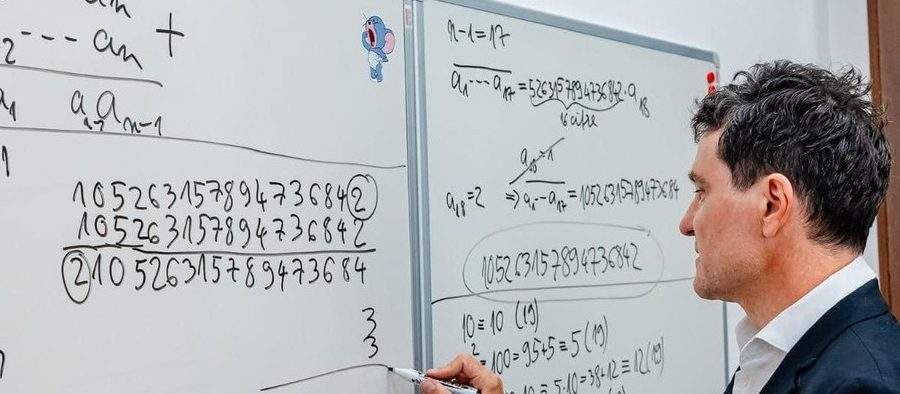 2 --- an +
a1 a17 an-1
1
105263157894736842
105263157894736842
210526315789473684
3
3
n-1=17
a1---a17 = 5263157894736842·a18
16 cifre
a18=1
a18=2 ⇒ a1--a17 = 10526315789473684
105263157894736842
10≡10 (19)
²=100=95+5≡5(19)
10≡5·10=38+12≡12(19)